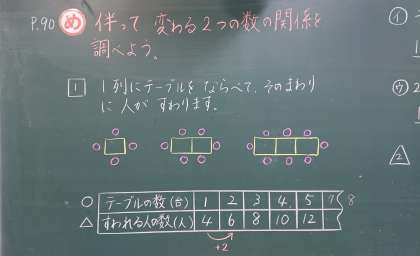 P.90 め 伴って変わる2つの数の関係を
調べよう。
1 1列にテーブルをならべて、そのまわり
に人がすわります。
○ テーブルの数(台) 1 2 3 4 5 7 8
△ すわれる人の数(人) 4 6 8 10 12
+2
ア
ウ 2
2